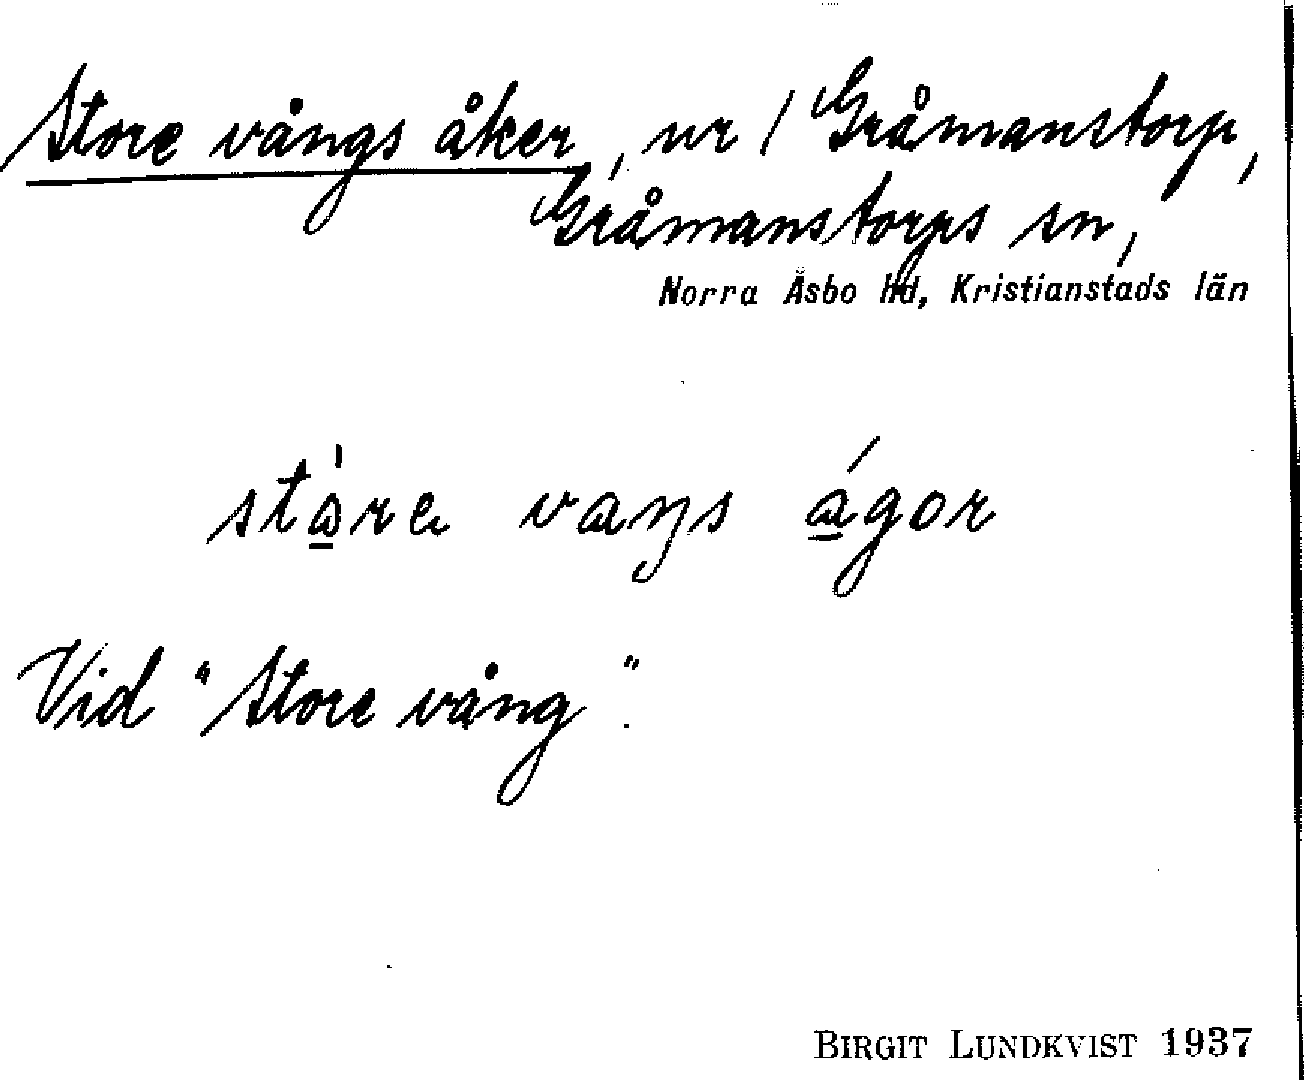 Store vångs åker, nr 1 Gråmanstorp,
Gråmanstorps sn,
Norra Åsbo hd, Kristianstads län
vaŋs ågor
Vid "Store vång".
BIRGIT LUNDKVIST 1937